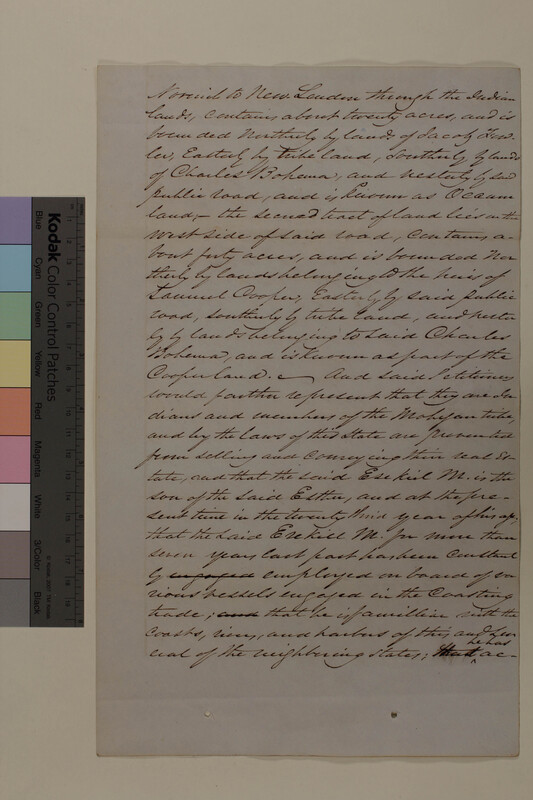 Norwich to New London through the Indian
lands, contains about twenty acres, and is
bounded Northerly by lands of Jacob Fow-
ler, Easterly by tribe land, Southerly by lands
of Charles Bohema, and Westerly by said
public road, and is known as Occum
land,- the second tract of land lies on the
West side of said road, contains a-
bout forty acres, and is bounded Nor
therly by lands belonging to the heirs of
Samuel Cooper, Easterly by said public
road, Southerly by tribe land, and Wester
ly by lands belonging to said Charles
Bohema, and is known as part of the
Cooper land. And said Petitioners
would further represent that they are In-
dians and members of the Mohegan tribe,
and by the laws of this State are prevented
from selling and conveying their real Es-
tate, and that the said Esekiel M. is the
son of the said Esther, and at the pre-
sent time in the twenty third year of his age;
that the said Ezekiel M. for more than
seven years last past has been constant
ly engaged employed on board of va
rious vessels engaged in the Coasting
trade; and that he is familliar with the
Coasts, rivers, and harbors of this and Sev-
eral of the neighboring states; that he has ac-
Kodak
Color Control Patches
Blue
Cyan
Green
Yellow
Red
Magenta
White
3/Color
Black